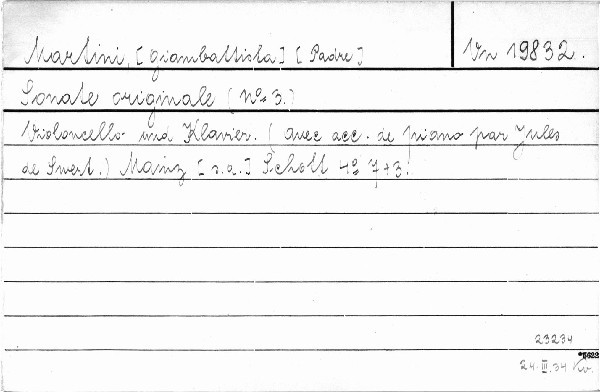 Martini, [Giambattista] [Padre] Vn 19832.
Sonate originale (No. 3.)
Violoncello und Klavier. (avec acc. de piano par Jules
de Swert.) Mainz [s.a.] Schott 4o 7+3.
23234
24.III.34